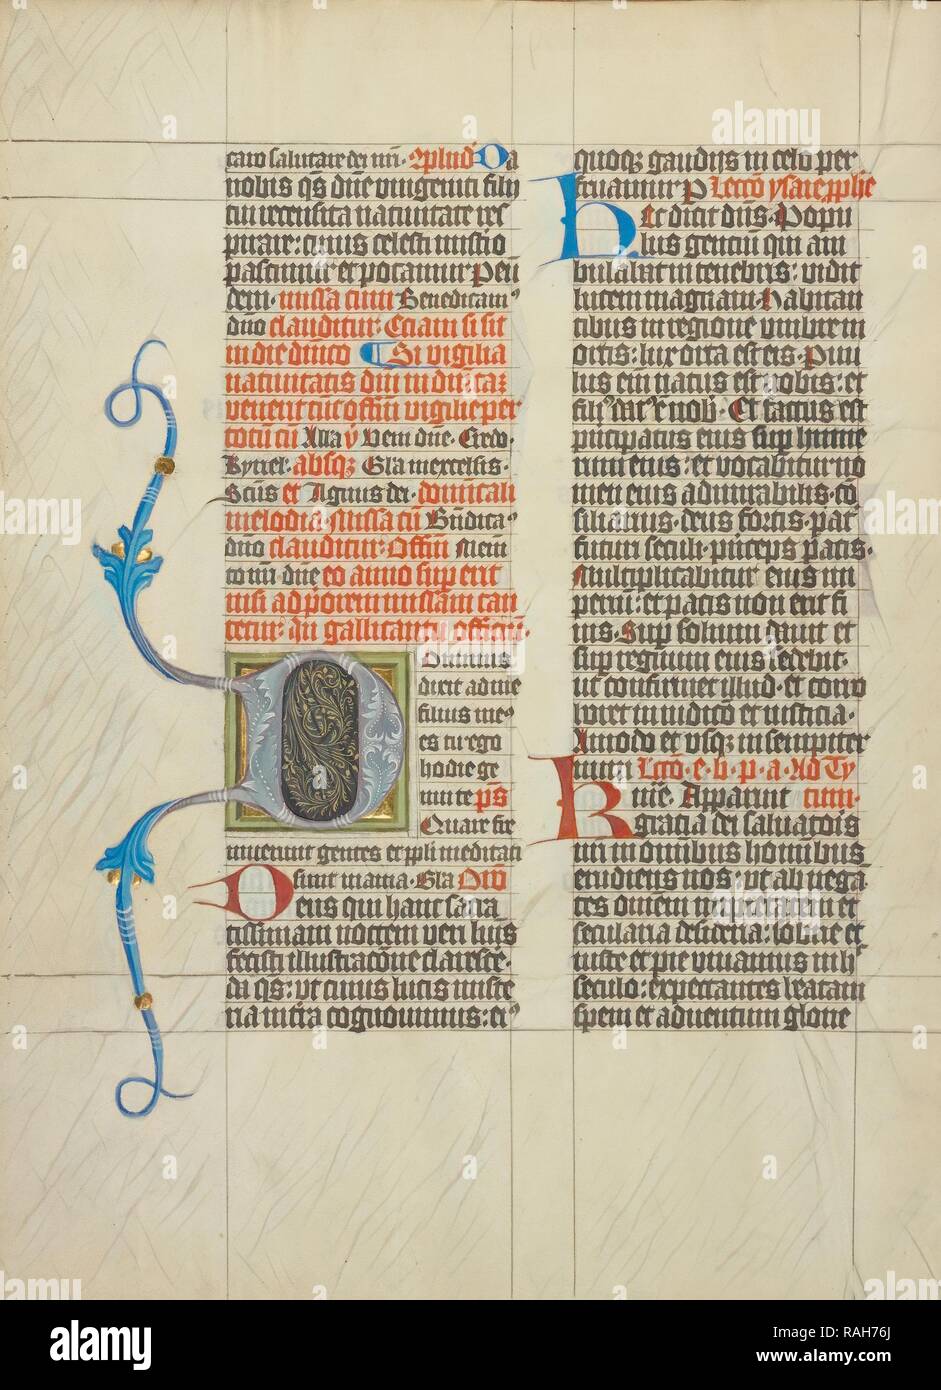 caro salutare dei nri. Cplend Da
nobis qs dne unigeniti filii
tui recensita nativitate res
pirare: cuius celesti misterio
pascimur et potamur Per eun
dem. missa cum Benedicam9
dno clauditur: Etiam si sit
in die dinico ¶ Si vigilia
nativitatis dni in dnicaz
venerit tuc offm vigilie per
totu cu Alla v Veni dne. Credo.
kyriel. absqz Gla in excelsis.
Scus et Agnus dei. dominicali
melodia missa cu Bndica9
dno clauditur: Offm Mem
to nri dne eo anno sup erit
nisi ad porem missam can
tetur. In gallicantu officiu.
Dominus
dixit ad me
filius me9
es tu ego
hodie ge
nui te ps
Quare fre
muerunt gentes et ppli meditati
sunt inania. Gla Oro
Deus qui hanc sacra
tissimam noctem veri luis
fecisti illustracone claresce.
da qs: ut cuius lucis miste
ria in tra cognouimus: ei9
quoqz gaudijs in celo per
fruamur P Lecco ysaie pphe
hec dicit dns. Popu
lus gentiu qui am
bulabat in tenebris: vidit
lucem magnam. Habitan
tibus in regione umbre m
ortis: lux orta est eis. Parvu
lus em natus est nobis: et
fili9 dat9 e nob. Et factus est
pncipatus eius sup hume
rum eius: et vocabitur no
men eius admirabilis. co
siliarius. deus fortis. pat
futuri seculi. princeps pacis.
Multiplicabitur eius im
periu: et pacis non erit fi
nis. Sup solium dauit et
sup regnum eius sedebit.
ut confirmet illud. et corro
boret in iudico et iusticia.
Amodo et usqz in sempiter
num Lcco. e. b. p. a. Ad Ty
Rme. Apparuit tum.
gracia dei saluatoris
nri in omnibus hominibus
erudiens nos. vt abnega
tes omnem impietatem et
secularia desideria: sobrie et
iuste et pie viuamus in h
seculo: expectantes beatam
spem et aduentum glorie
alamy
Image ID: RAH76J
www.alamy.com